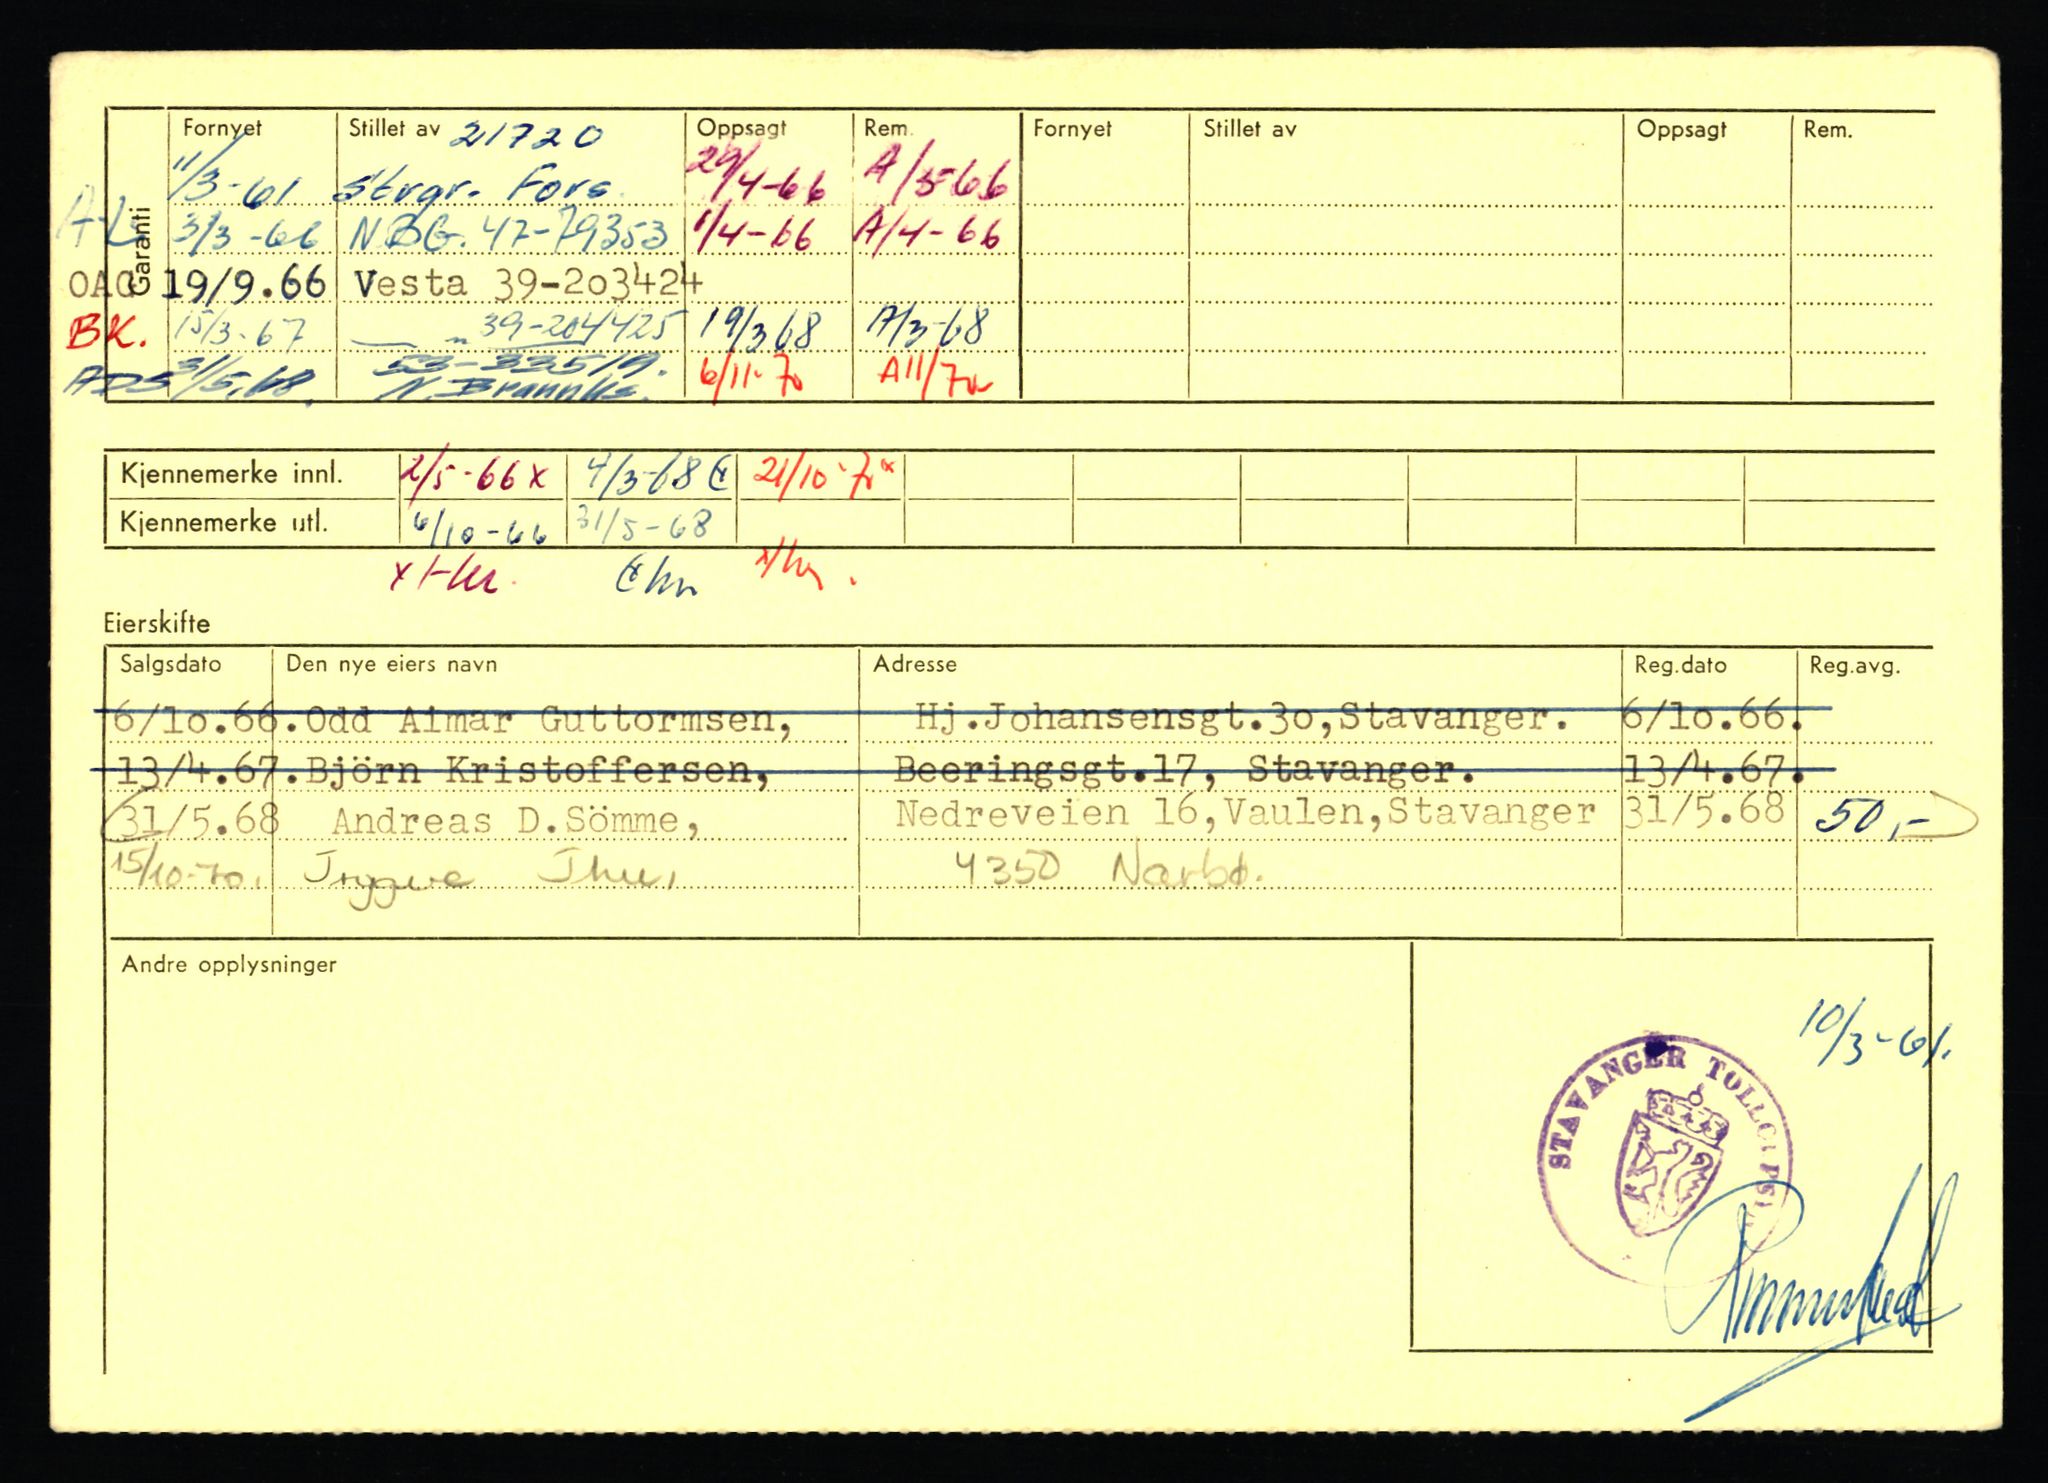 Garanti
Fornyet Stillet av 21720 Oppsagt Rem. Fornyet Stillet av Oppsagt Rem.
11/3-61 Strgr. Fors. 29/4-66 A/3-66
31/3-66 NBG. 47-79353 1/4-66 A/4-66
OAG 19/9.66 Vesta 39-203424
BK. 15/3-67 — " — 39-204425 19/3 68 A/3-68
ADS 31/5.68. 53-33519. N. Brannks. 6/11-70 A11/70
Kjennemerke innl. 2/5-66 x 4/3-68 21/10-70 x
Kjennemerke utl. 6/10-66 31/5-68
Eierskifte
Salgsdato Den nye eiers navn Adresse Reg.dato Reg.avg.
6/10.66. Odd Aimar Guttormsen, Hj.Johansensgt.30,Stavanger. 6/10.66.
13/4.67. Björn Kristoffersen, Beeringsgt.17, Stavanger. 13/4.67.
31/5.68 Andreas D.Sömme, Nedreveien 16,Vaulen,Stavanger 31/5.68 50,-
15/10-70. Trygve Thu, 4350 Nærbø.
Andre opplysninger
10/3-61.
STAVANGER TOLL